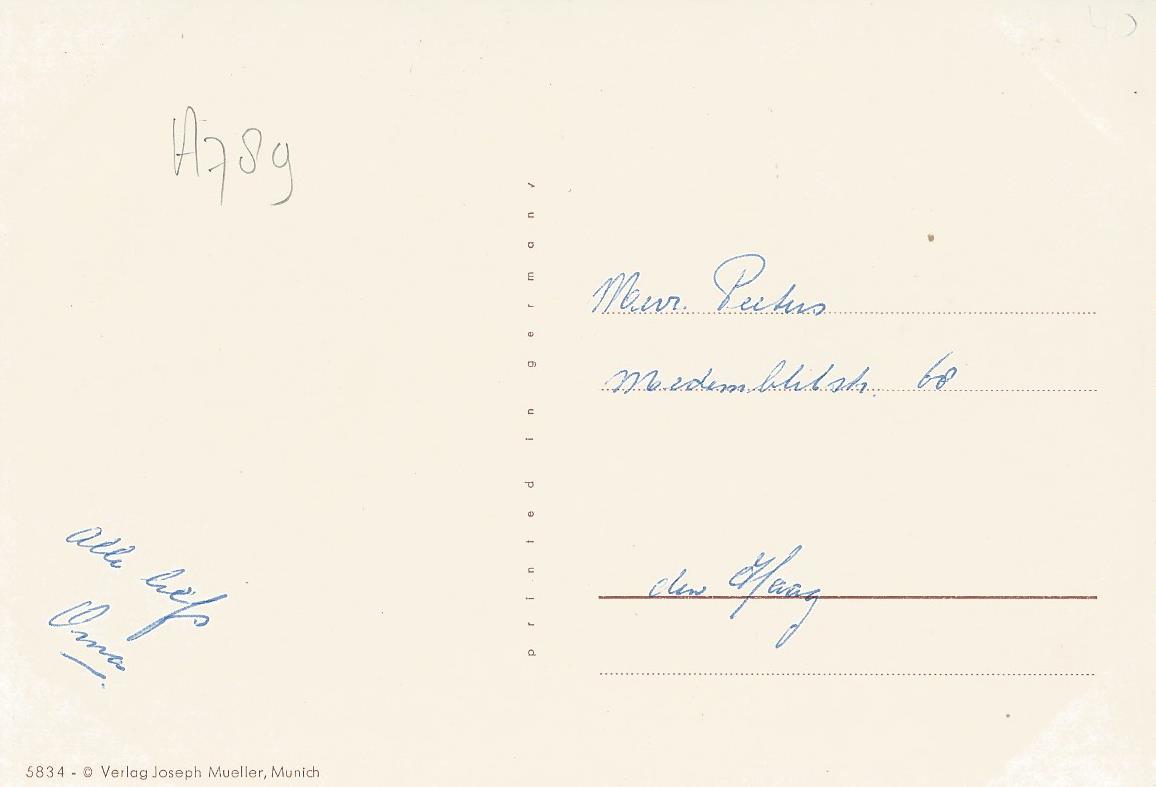 A789
Mevr. Peeters
Medemblikstr. 68
den Haag
Alle liefs
Oma.
printed in germany
5834 - © Verlag Joseph Mueller, Munich